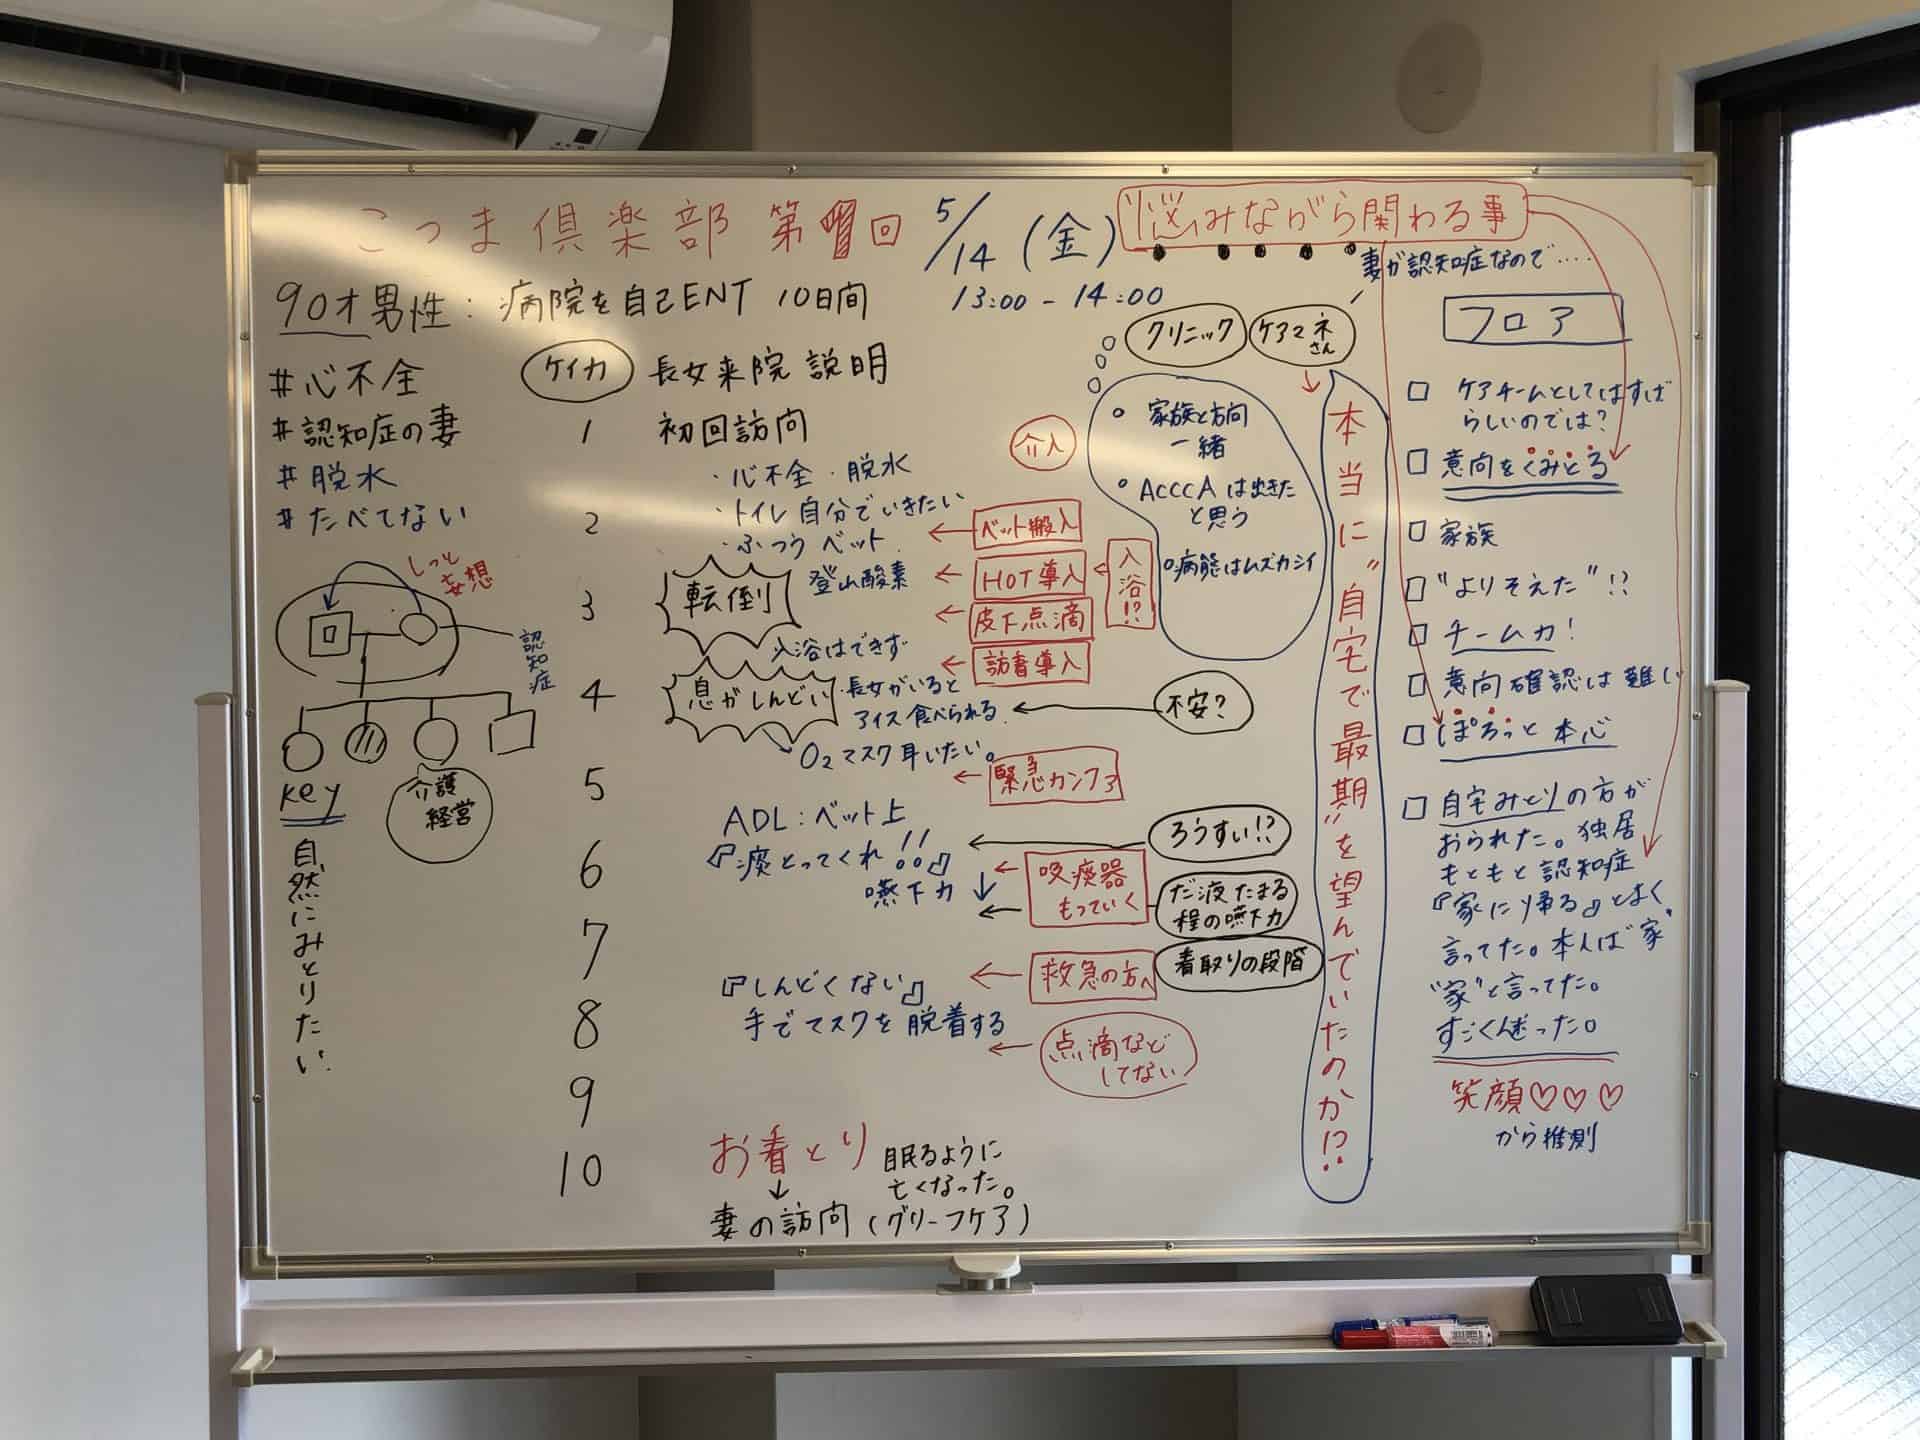 こつま倶楽部 第 回
5/14 (金)
13:00 - 14:00
悩みながら関わる事
妻が認知症なので‥‥
90才男性: 病院を自己ENT 10日間
#心不全
#認知症の妻
#脱水
#たべてない
しっと
妄想
認知症
介護
経営
key
自然にみとりたい
ケイカ
長女来院 説明
1 初回訪問
・心不全・脱水
・トイレ自分でいきたい
2
・ふつうベット
ベット搬入
3
転倒
登山酸素
HOT導入
皮下点滴
入浴!?
入浴はできず
訪看導入
介入
4
息がしんどい
・長女がいると
アイス食べられる
不安?
O₂マスク耳いたい。
5
緊急カンファ
ADL:ベット上
6
『痰とってくれ!!』
嚥下力↓
ろうすい!?
吸痰器
もっていく
だ液たまる
程の嚥下力
7
看取りの段階
救急の方へ
『しんどくない』
8
手でマスクを脱着する
点滴など
してない
9
10
お看とり
眠るように
亡くなった。
↓
妻の訪問(グリーフケア)
クリニック
家族と方向
一緒
ACCCAは出きた
と思う
病態はムズカシイ
ケアマネさん
本当に"自宅で最期"を望んでいたのか!?
フロア
□ ケアチームとしてはすば
らしいのでは?
□ 意向をくみとる
□ 家族
□ "よりそえた"!?
□ チーム力!
□ 意向確認は難しい
□ ぽろっと本心
□ 自宅みとりの方が
おられた。独居
もともと認知症
『家に帰る』とよく
言ってた。本人は"家"
"家"と言ってた。
すごく迷った。
笑顔♡♡♡
から推測